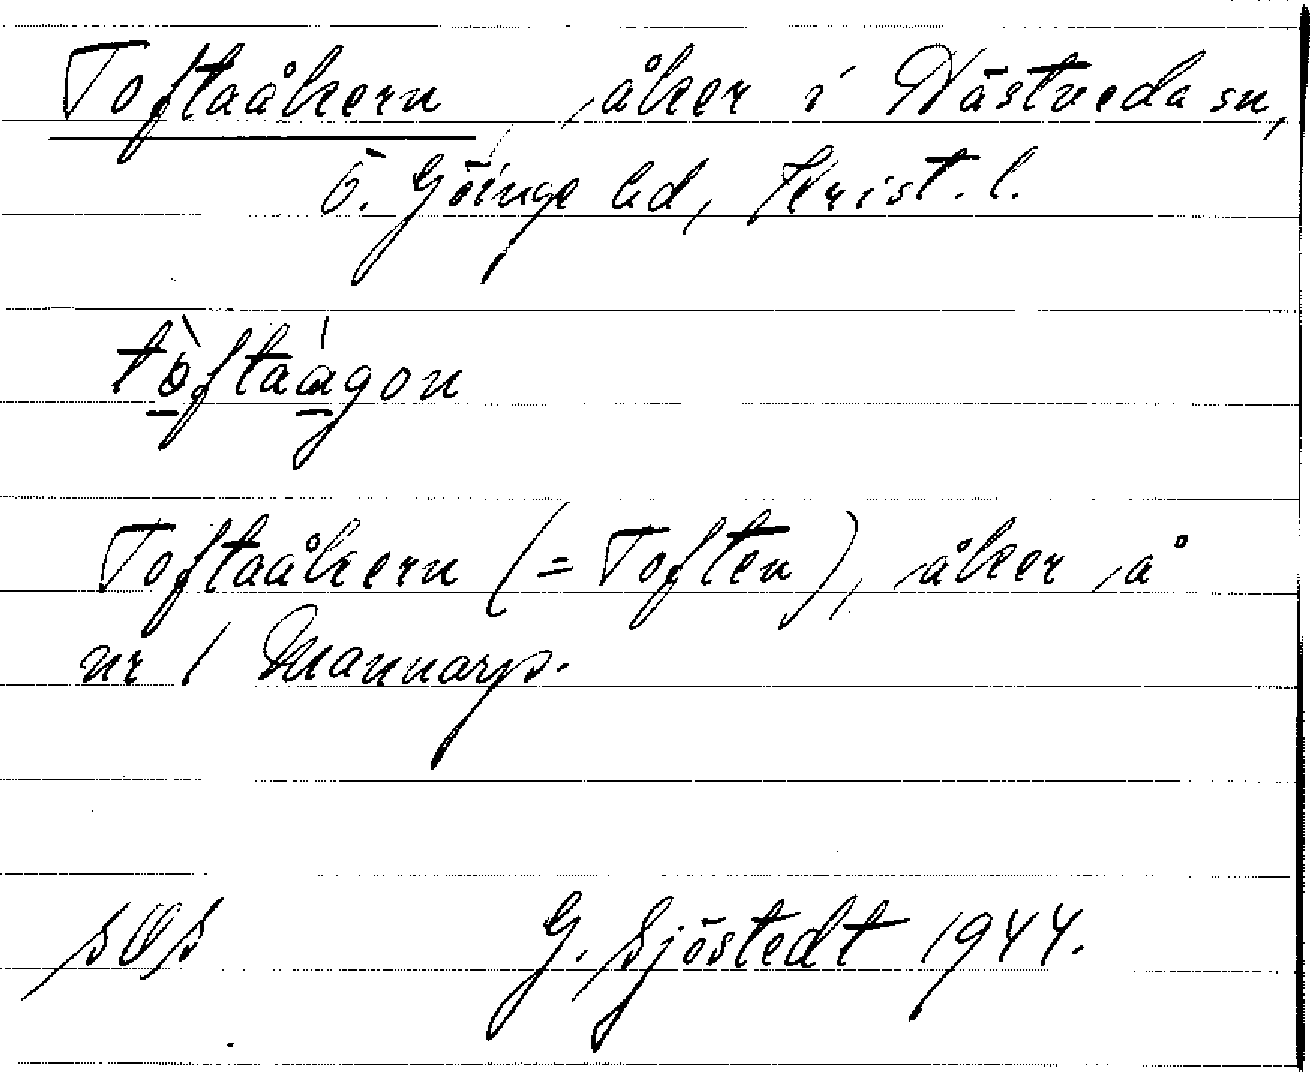 Toftaåkern, åker i Nästveda sn,
Ö. Göinge hd, Krist. l.
tòftaágon
Toftaåkern (= Toften), åker å
nr 1 Mannarp.
G. Sjöstedt 1944.